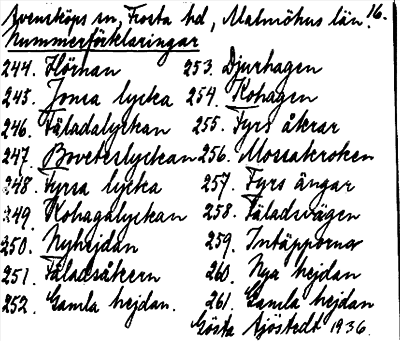 Svensköps sn, Frosta hd, Malmöhus län. 16.
Nummerförklaringar
244. Hörnan 253. Djurhagen
245. Jonsa lycka 254. Kohagen
246. Fäladalyckan 255. Fyrs åkrar
247. Boveteslyckan 256. Mossakroken
248. Fyrsa lycka 257. Fyrs ängar
249. Kohagalyckan 258. Fäladsvägen
250. Nyhejdan 259. Intäpporna
251. Fäladsåkern 260. Nya hejdan
252. Gamla hejdan. 261. Gamla hejdan
Gösta Sjöstedt 1936.